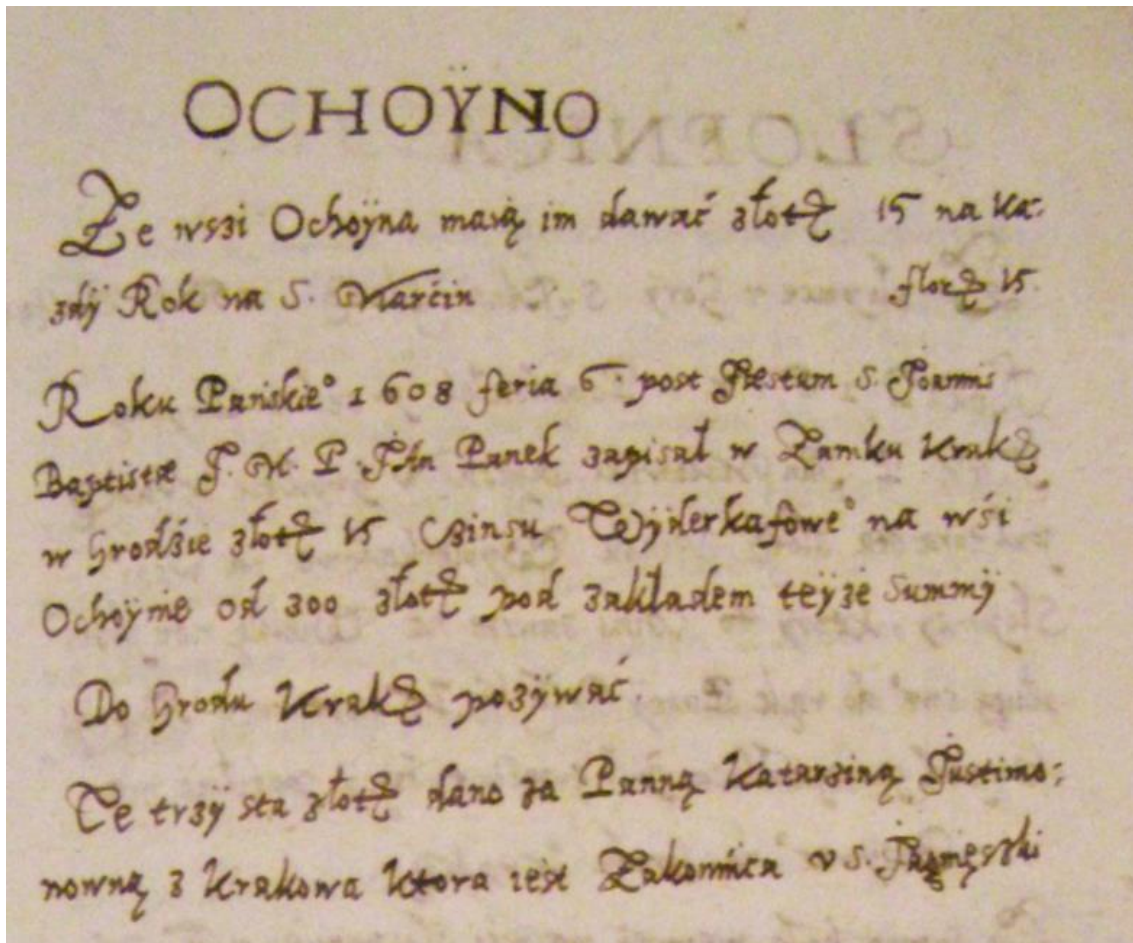 OCHOŸNO
Ze wszi Ochoÿna maią im dawać złotꝝ 15 na ka:
zdÿ Rok na S. Marćin florꝝ 15.
Roku Panskie° 1608 feria 6. post Festum S. Joannis
Baptistæ J. M. P. JAn Panek zapisał w Zamku Krakꝝ
w hrodźie złotꝝ 15 Czinsu Wÿderkafowe° na wśi
Ochoÿnie od 300 złotꝝ pod zakładem teÿże summÿ
Do hrodu Krakꝝ pozÿwać.
Te trzÿ sta złotꝝ dano za Panną Katarziną Justimo:
nowną z Krakowa ktora iest Zakonnica v S.